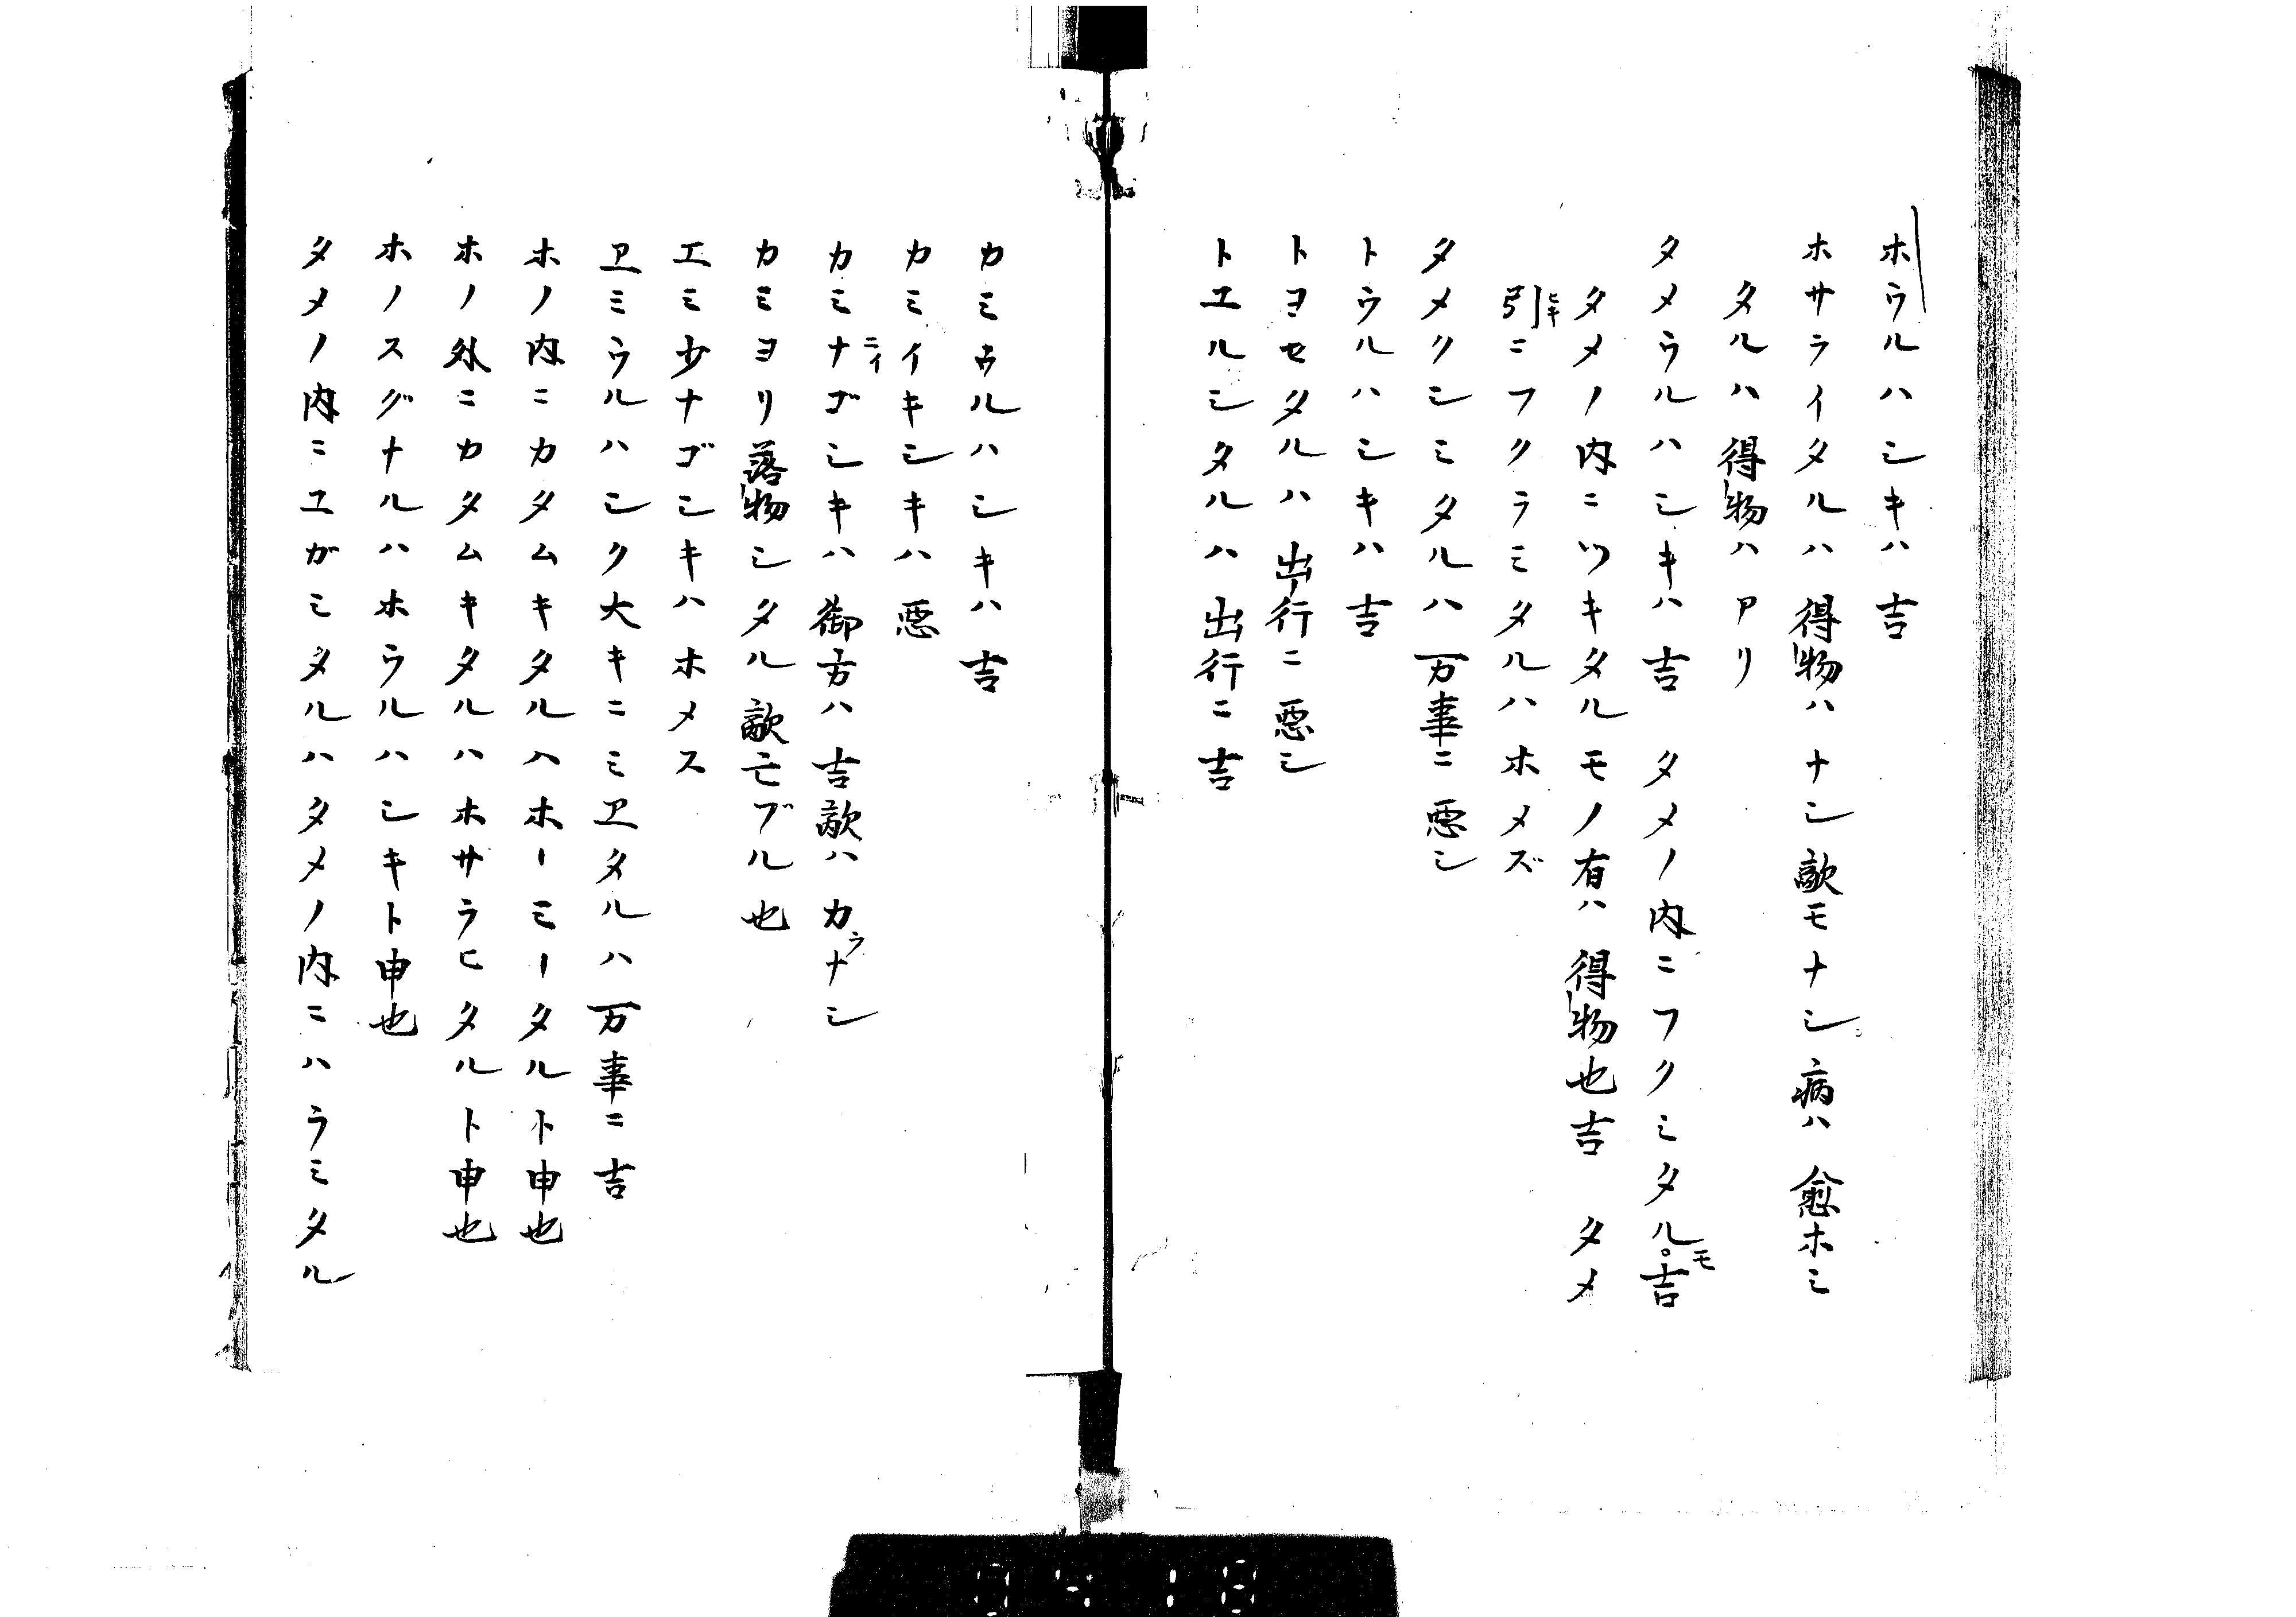 ホウルハシキハ吉
ホサライタルハ得物ハナシ敵モナシ病ハ愈ホシ
タルハ得物ハアリ
タメウルハシキハ吉 タメノ内ニフクミタルモ吉
タメノ内ニツキタルモノ有ハ得物也吉 タメ
引ヒキニフクラミタルハホメズ
タメクシミタルハ万事ニ悪シ
トウルハシキハ吉
トヨセタルハ出行ニ悪シ
トユルシタルハ出行ニ吉
カミウルハシキハ吉
カミイキシキハ悪
カミナゴシキハ御方ハ吉敵ハカラナシ
カミヨリ落物シタル敵亡ブル也
エミ少ナゴシキハホメス
ヱミウルハシク大キニミヱタルハ万事ニ吉
ホノ内ニカタムキタルハホーミータルト申也
ホノ外ニカタムキタルハホサラヒタルト申也
ホノスグナルハホウルハシキト申也
タメノ内ニユガミタルハタメノ内ニハラミタル